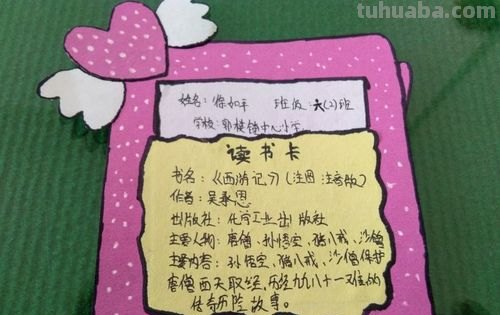 tuhuaba.com
姓名：徐如平 班级：六(2)班
学校：郭集镇中心小学
读书卡
书名：《西游记》（注图 注音版）
作者：吴承恩
出版社：化学工业出版社
主要人物：唐僧、孙悟空、猪八戒、沙僧
主要内容：孙悟空、猪八戒、沙僧保护
唐僧西天取经，历经九九八十一难的
传奇历险故事。